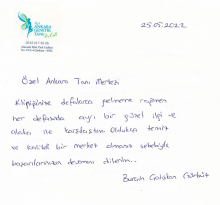 ANKARA
GENETİK
TANI
25.05.2022
Özel Ankara Tanı Merkezi
Kliniğinize defalarca gelmeme rağmen
her defasında ayrı bir güzel ilgi ve
alaka ile karşılaştım Oldukça temiz
ve kaliteli bir merkez olmanız sebebiyle
başarılarınızın devamını dilerim...
Burcin